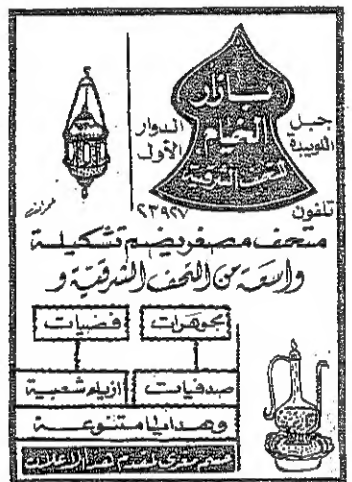 بازار
الخيام
للتحف الشرقية
جبل
اللويبدة
الدوار
الأول
تلفون
٢٣٩٢٧
متحف مصغر يضم تشكيلة
واسعة من التحف الشرقية و
مجوهرات
فضيات
صدفيات
ازياء شعبية
وهدايا متنوعة